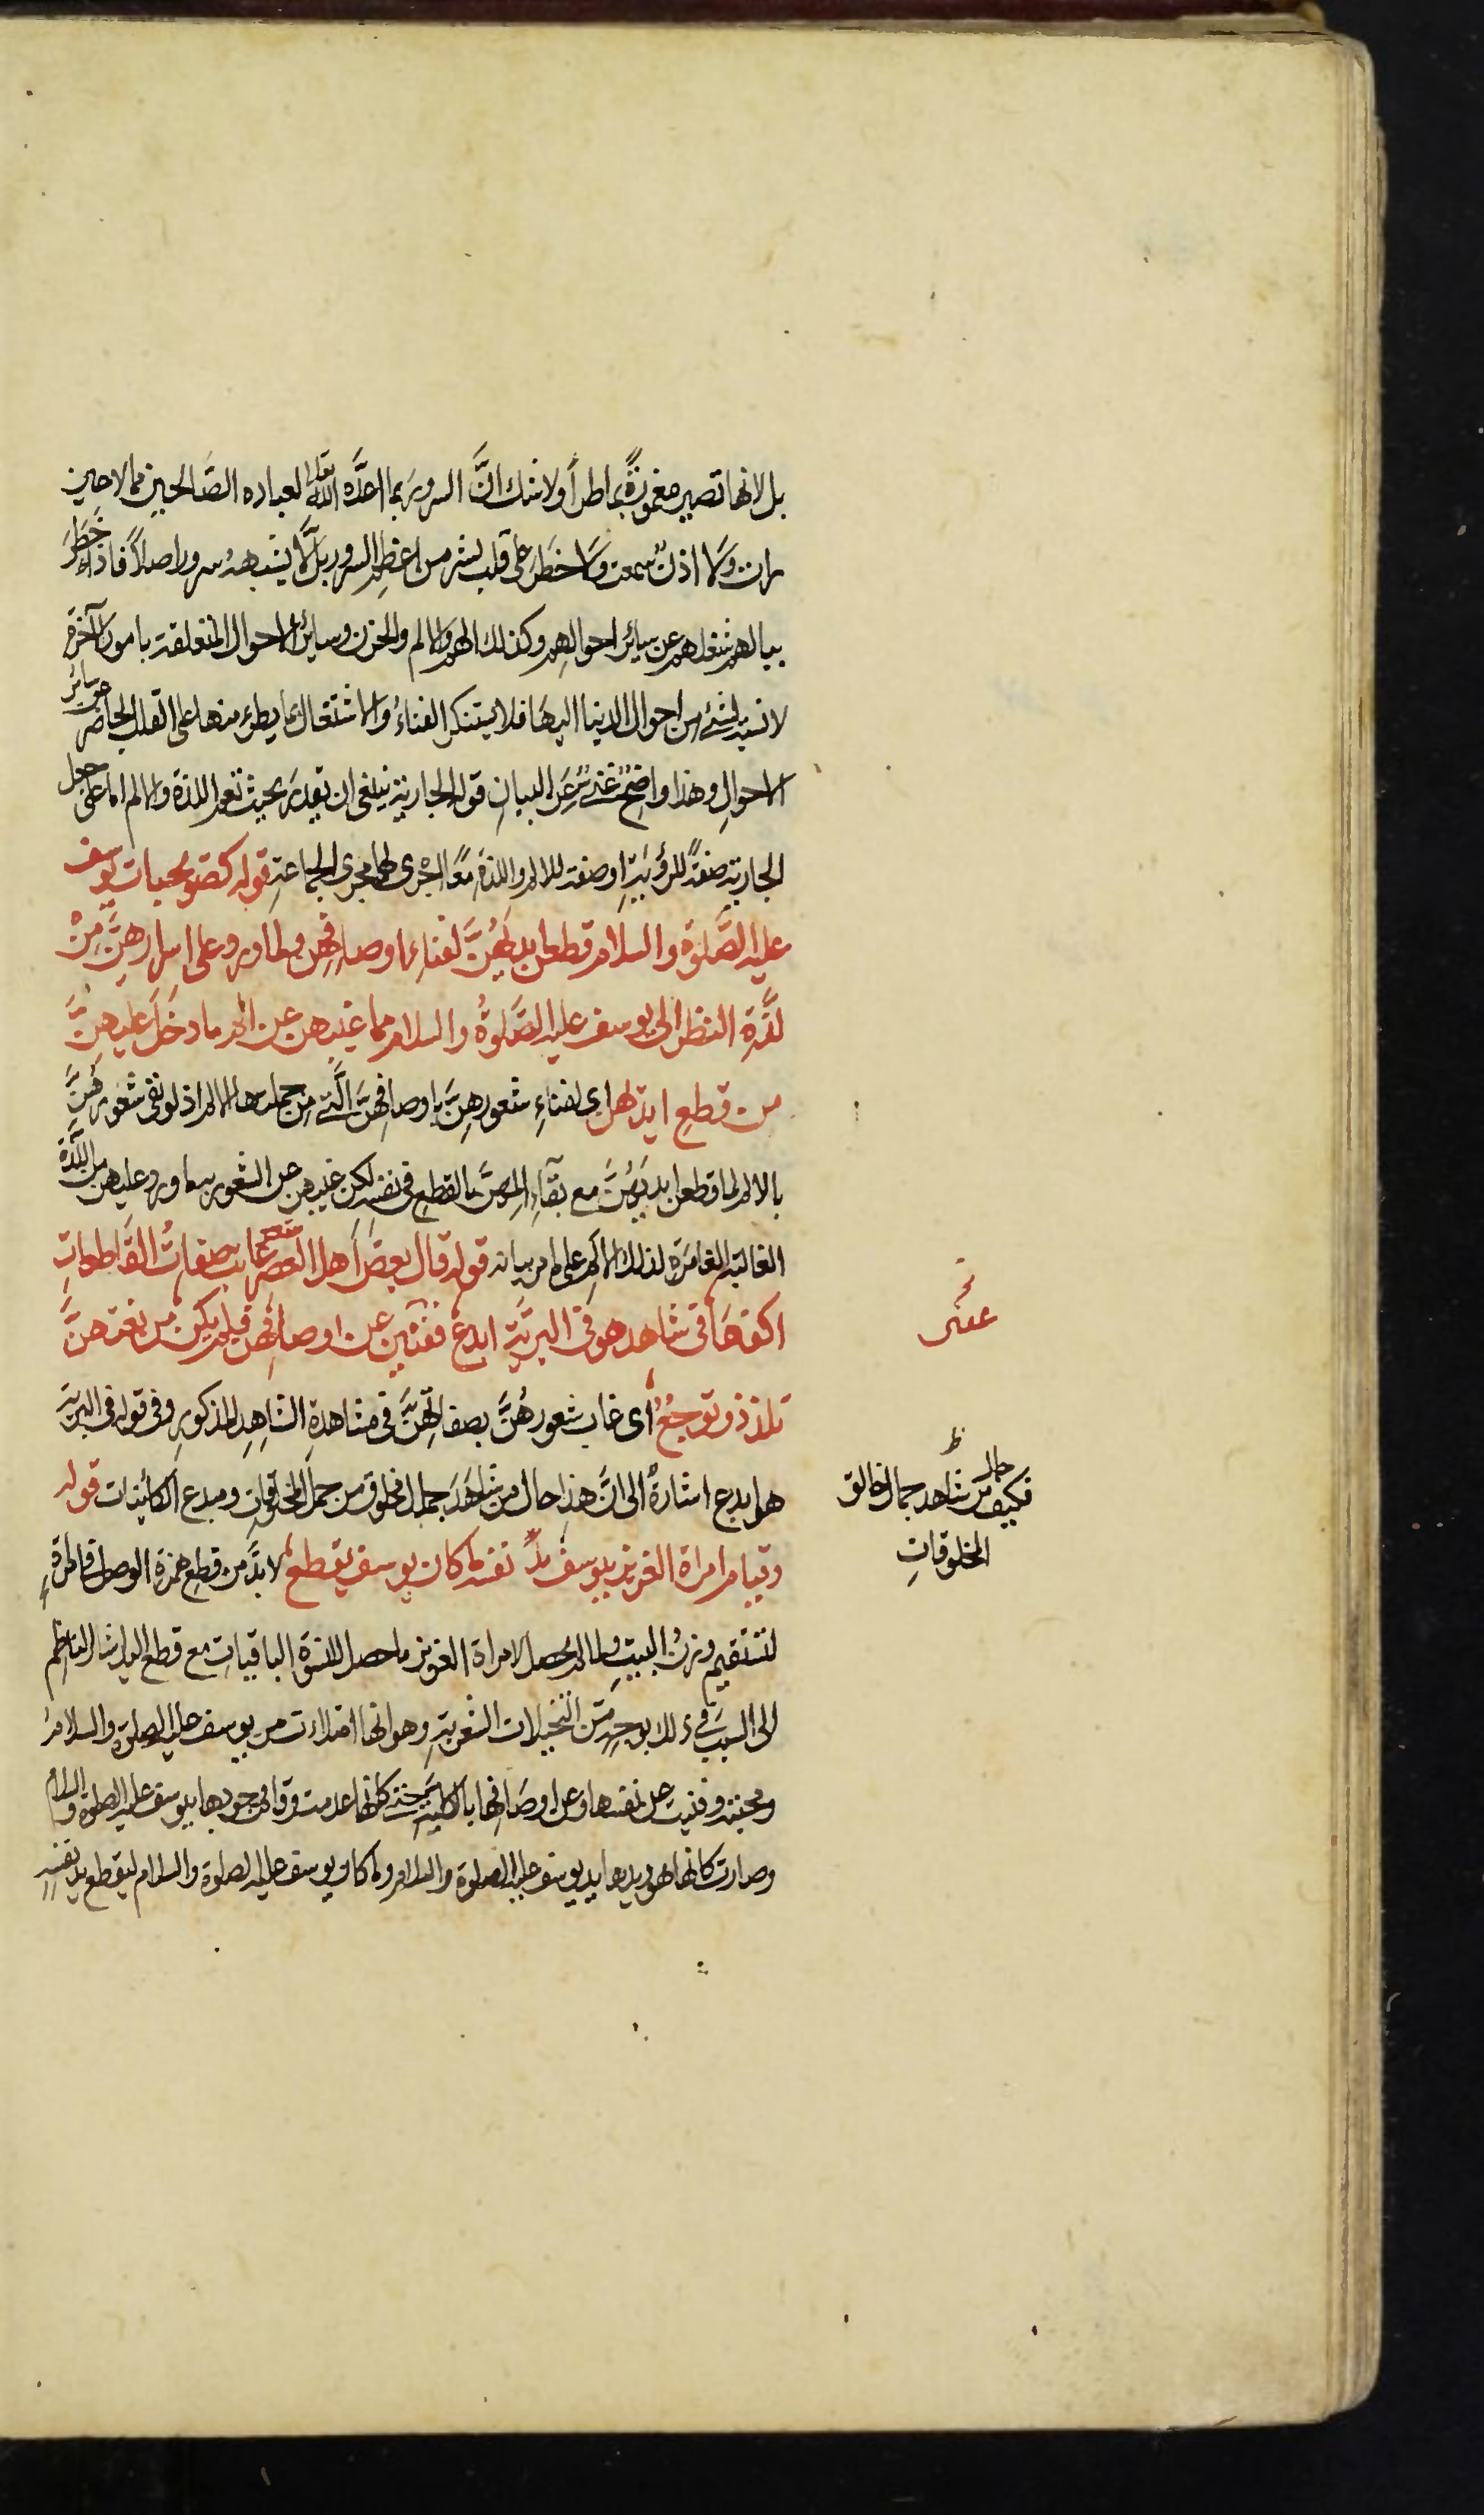 بل لانها تصير مغمورةً بما طرأ ولا شك انَّ السرورَ بما اعدَّه الله تعالى لعباده الصَّالحين مما لا عين
رات ولا اذنٌ سمعت ولا خطَر على قلب بشر من اعظم السرور بل لا يشبهه سرور اصلاً فاذا خَطَرَ
ببالهم شغلهم عن سائر احوالهم وكذلك الهم والالم والحزن وسائر الاحوال المتعلقة بامور الآخرة
لا نسبة لشئ من احوال الدنيا اليها فلا يستنكر الفناءُ والاشتغال بما يطرء منها على القلب الحاضر عن سائر
الاحوالِ وهذا واضحٌ غنيٌّ عَن البيانِ قوله الجارية ينبغي ان يقدر بحيث تعم اللذة والالم اما على جعل
الجارية صفةً للرؤيةِ او صفة للالم واللذةِ معًا اجرى لهما مجرى الجماعةِ قوله كصويحبات يوسف
عليه الصَّلوة والسلام قطعن ايديَهُنَّ لفناء اوصافهن ولما ورد على اسرارهِنَّ مِنْ
لذَّة النظر الى يوسف عليه الصَّلوةُ والسلام مما غيبهن عن الم ما دخَلَ عليهنَّ
من قطع ايديهن اى لفناءِ شعورهِنَّ باوصافهنَّ الَّتي مِن جملتها الالم اذ لو بقى شعورهُنَّ
بالالم لما قطعن ايديَهُنَّ مع بقآءِ المِهنَّ بالقطع فى نفسه لكن غيبهن عن الشعور به ما ورد عليهن من اللَّذَّة
الغالبة الغامرة لذلك الالم على ما مر بيانه قوله قال بعضُ اهل العصر غابت صفاتُ القَاطعاتِ
اكفهَا فى شاهد هو فى البريَّة ابدعُ ففنين عن اوصافهن فلم يكن من نعتهنَّ
تلذذ وتوجعٌ اى غاب شعورهُنَّ بصفاتهنَّ فى مشاهدةِ الشَاهِدِ المذكورِ وفى قوله فى البرية
هو ابدع اشارةٌ الى انَّ هذا حال من شاهَدَ جمال مخلوق من جملة المخلوقاتِ ومبدع الكائنات قوله
وقيام امراة العزيز بيوسف بدَّ نفسه ما كان يوسف يقطعُ لا بدَّ من قطع همزة الوصل فى امراةِ
لتستقيم وزنُ البيتِ ولما لم يحصل لامراة العزيز ما حصل للنسوةِ الباقياتِ مع قطع اليد اشار الناظم
الى السببِ فى ذلك بوجهٍ من التخيلات الشعريةِ وهو انها امتلاءت من يوسف عليه الصلوة والسلامُ
ومحبته وفنيت عن نفسها وعن اوصَافها بالكلية حتى كانها عدمت وقام وجودها بيوسف عليه الصلوة والسلام
وصارت كانها هو ويدها يد يوسف عليه الصلوة والسلام وما كان يوسف عليه الصلوة والسلام ليقطع يد نفسِه
فكيف حال من شاهد جمال خالق
المخلوقاتِ